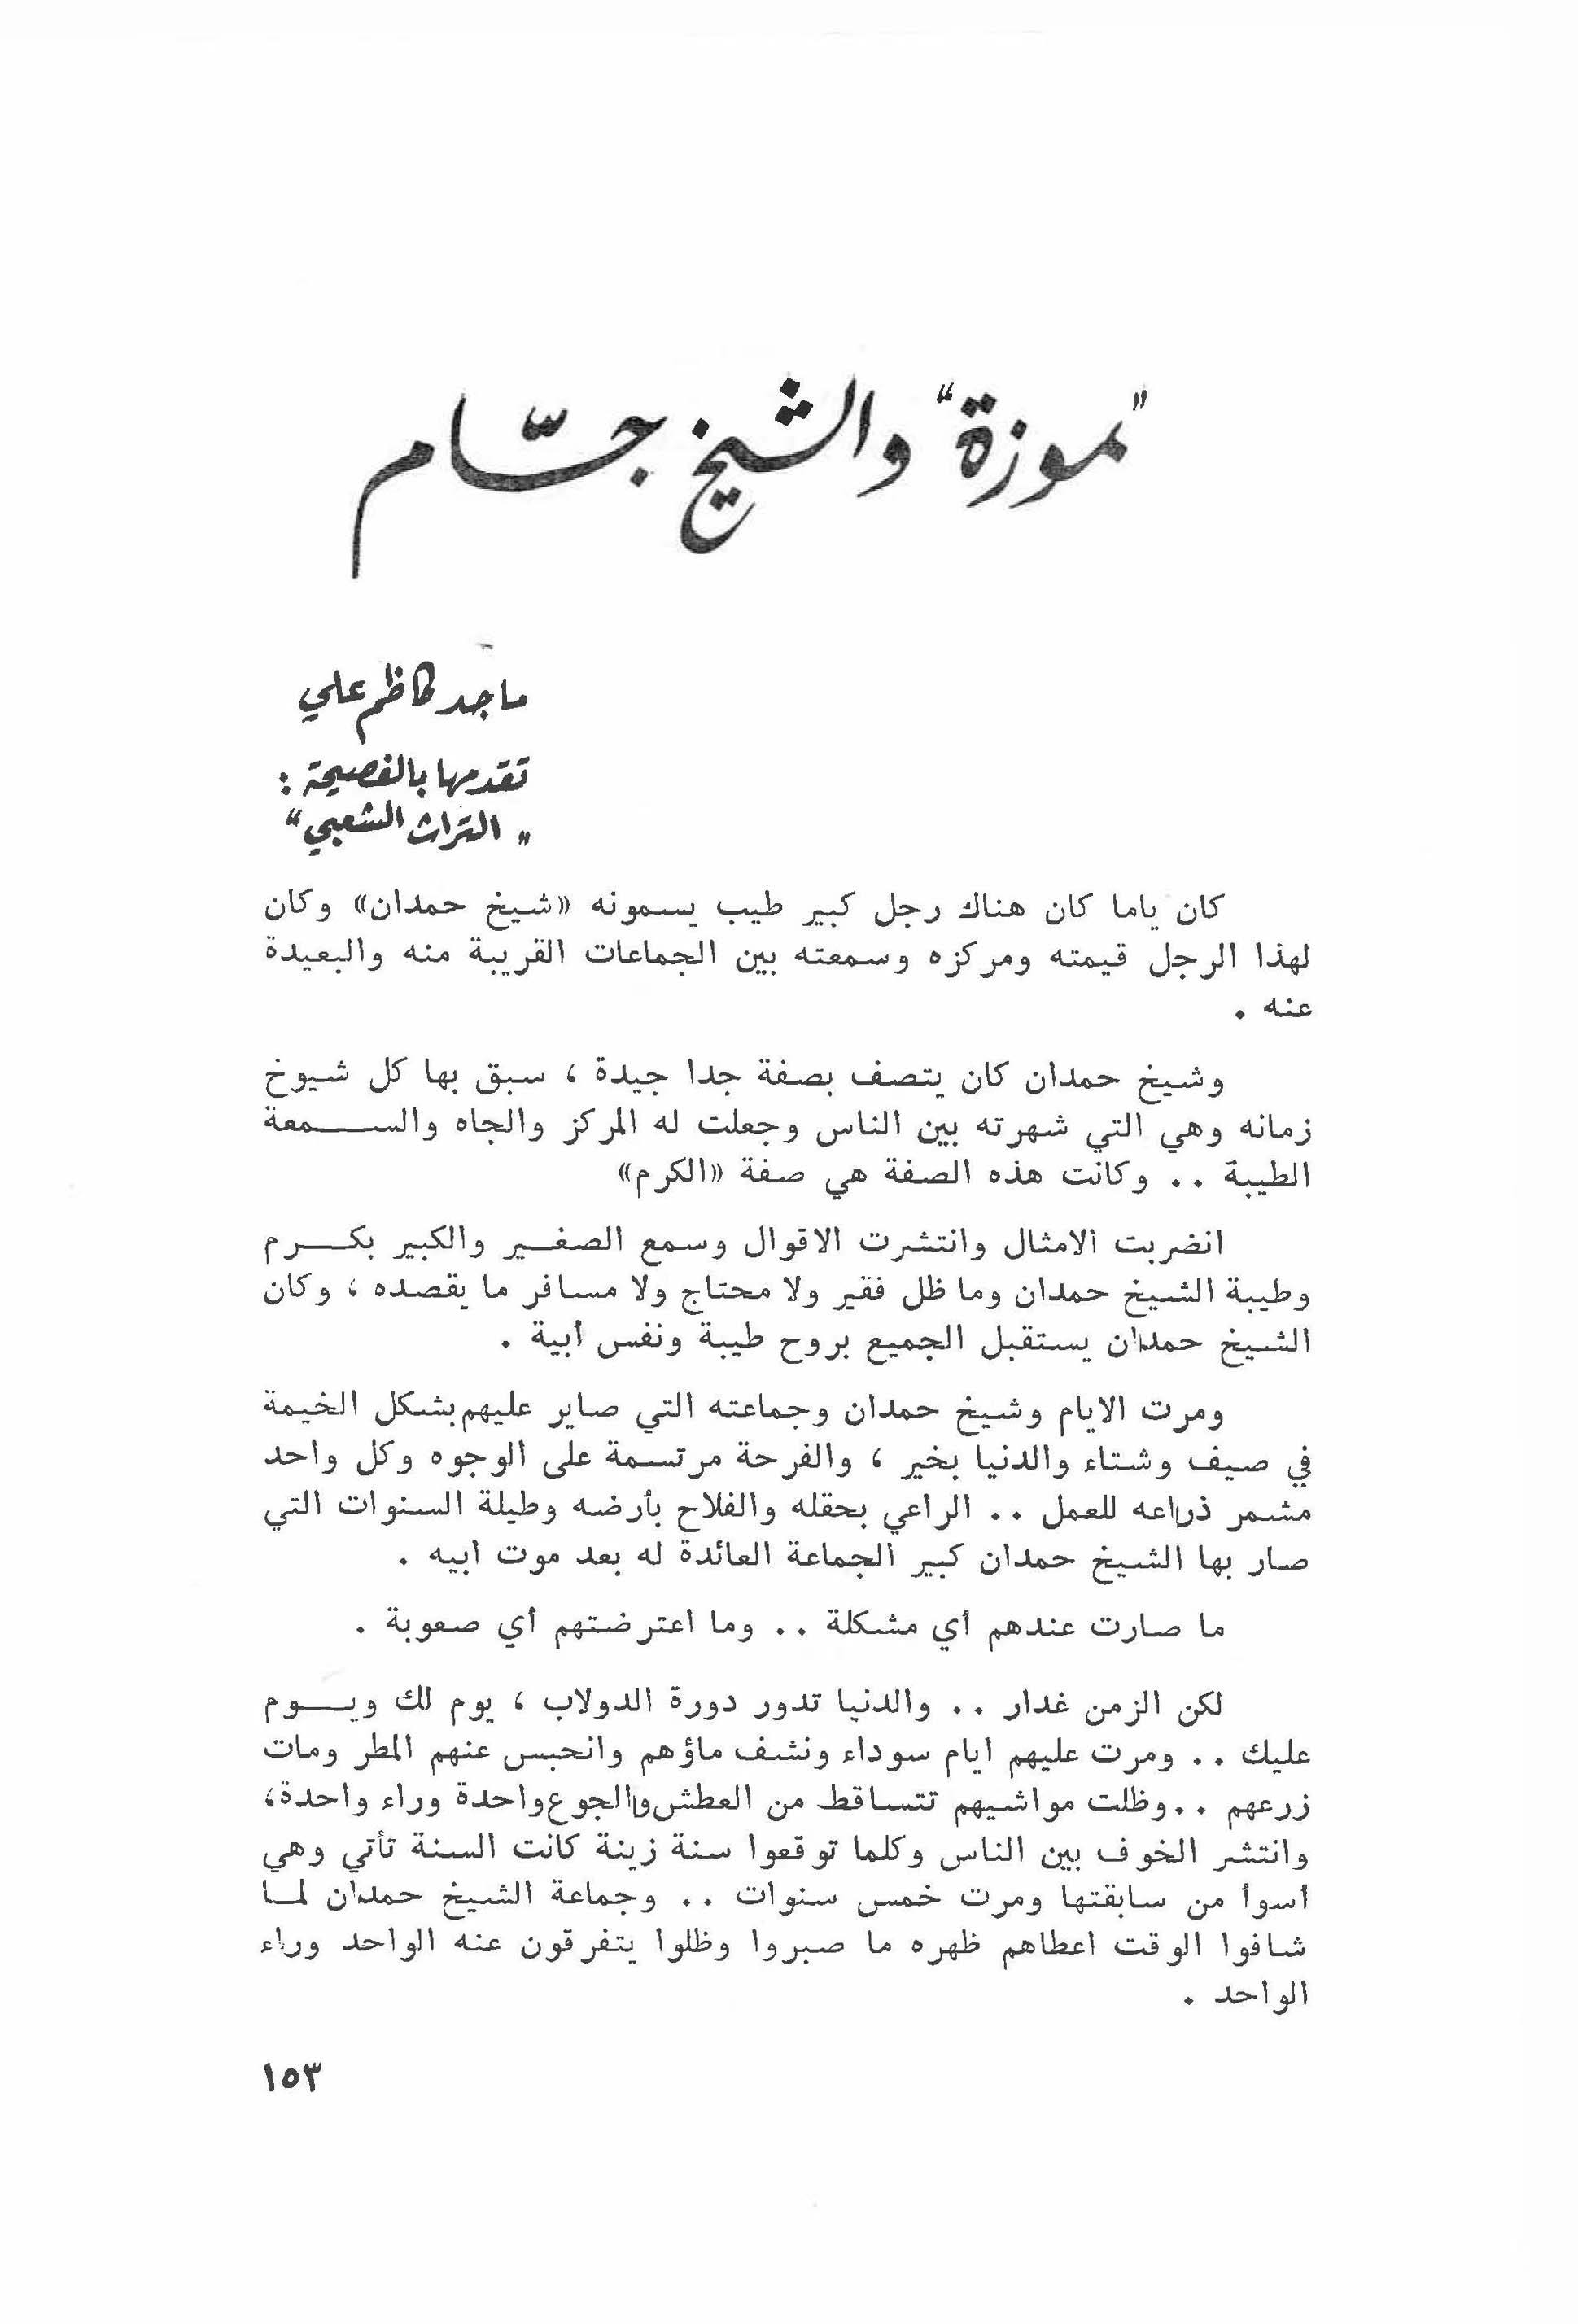 "موزة" والشيخ جسّام
ماجد كاظم علي
تقدمها بالفصيحة :
" التراث الشعبي "
كان ياما كان هناك رجل كبير طيب يسمونه «شيخ حمدان» وكان
لهذا الرجل قيمته ومركزه وسمعته بين الجماعات القريبة منه والبعيدة
عنه .
وشيخ حمدان كان يتصف بصفة جدا جيدة ، سبق بها كل شيوخ
زمانه وهي التي شهرته بين الناس وجعلت له المركز والجاه والسمعة
الطيبة . . وكانت هذه الصفة هي صفة «الكرم»
انضربت الامثال وانتشرت الاقوال وسمع الصغير والكبير بكرم
وطيبة الشيخ حمدان وما ظل فقير ولا محتاج ولا مسافر ما يقصده ، وكان
الشيخ حمدان يستقبل الجميع بروح طيبة ونفس أبية .
ومرت الايام وشيخ حمدان وجماعته التي صاير عليهم بشكل الخيمة
في صيف وشتاء والدنيا بخير ، والفرحة مرتسمة على الوجوه وكل واحد
مشمر ذراعه للعمل . . الراعي بحقله والفلاح بأرضه وطيلة السنوات التي
صار بها الشيخ حمدان كبير الجماعة العائدة له بعد موت ابيه .
ما صارت عندهم أي مشكلة . . وما اعترضتهم أي صعوبة .
لكن الزمن غدار . . والدنيا تدور دورة الدولاب ، يوم لك ويوم
عليك . . ومرت عليهم ايام سوداء ونشف ماؤهم وانحبس عنهم المطر ومات
زرعهم . . وظلت مواشيهم تتساقط من العطش والجوع واحدة وراء واحدة،
وانتشر الخوف بين الناس وكلما توقعوا سنة زينة كانت السنة تأتي وهي
أسوأ من سابقتها ومرت خمس سنوات . . وجماعة الشيخ حمدان لما
شافوا الوقت اعطاهم ظهره ما صبروا وظلوا يتفرقون عنه الواحد وراء
الواحد .
١٥٣